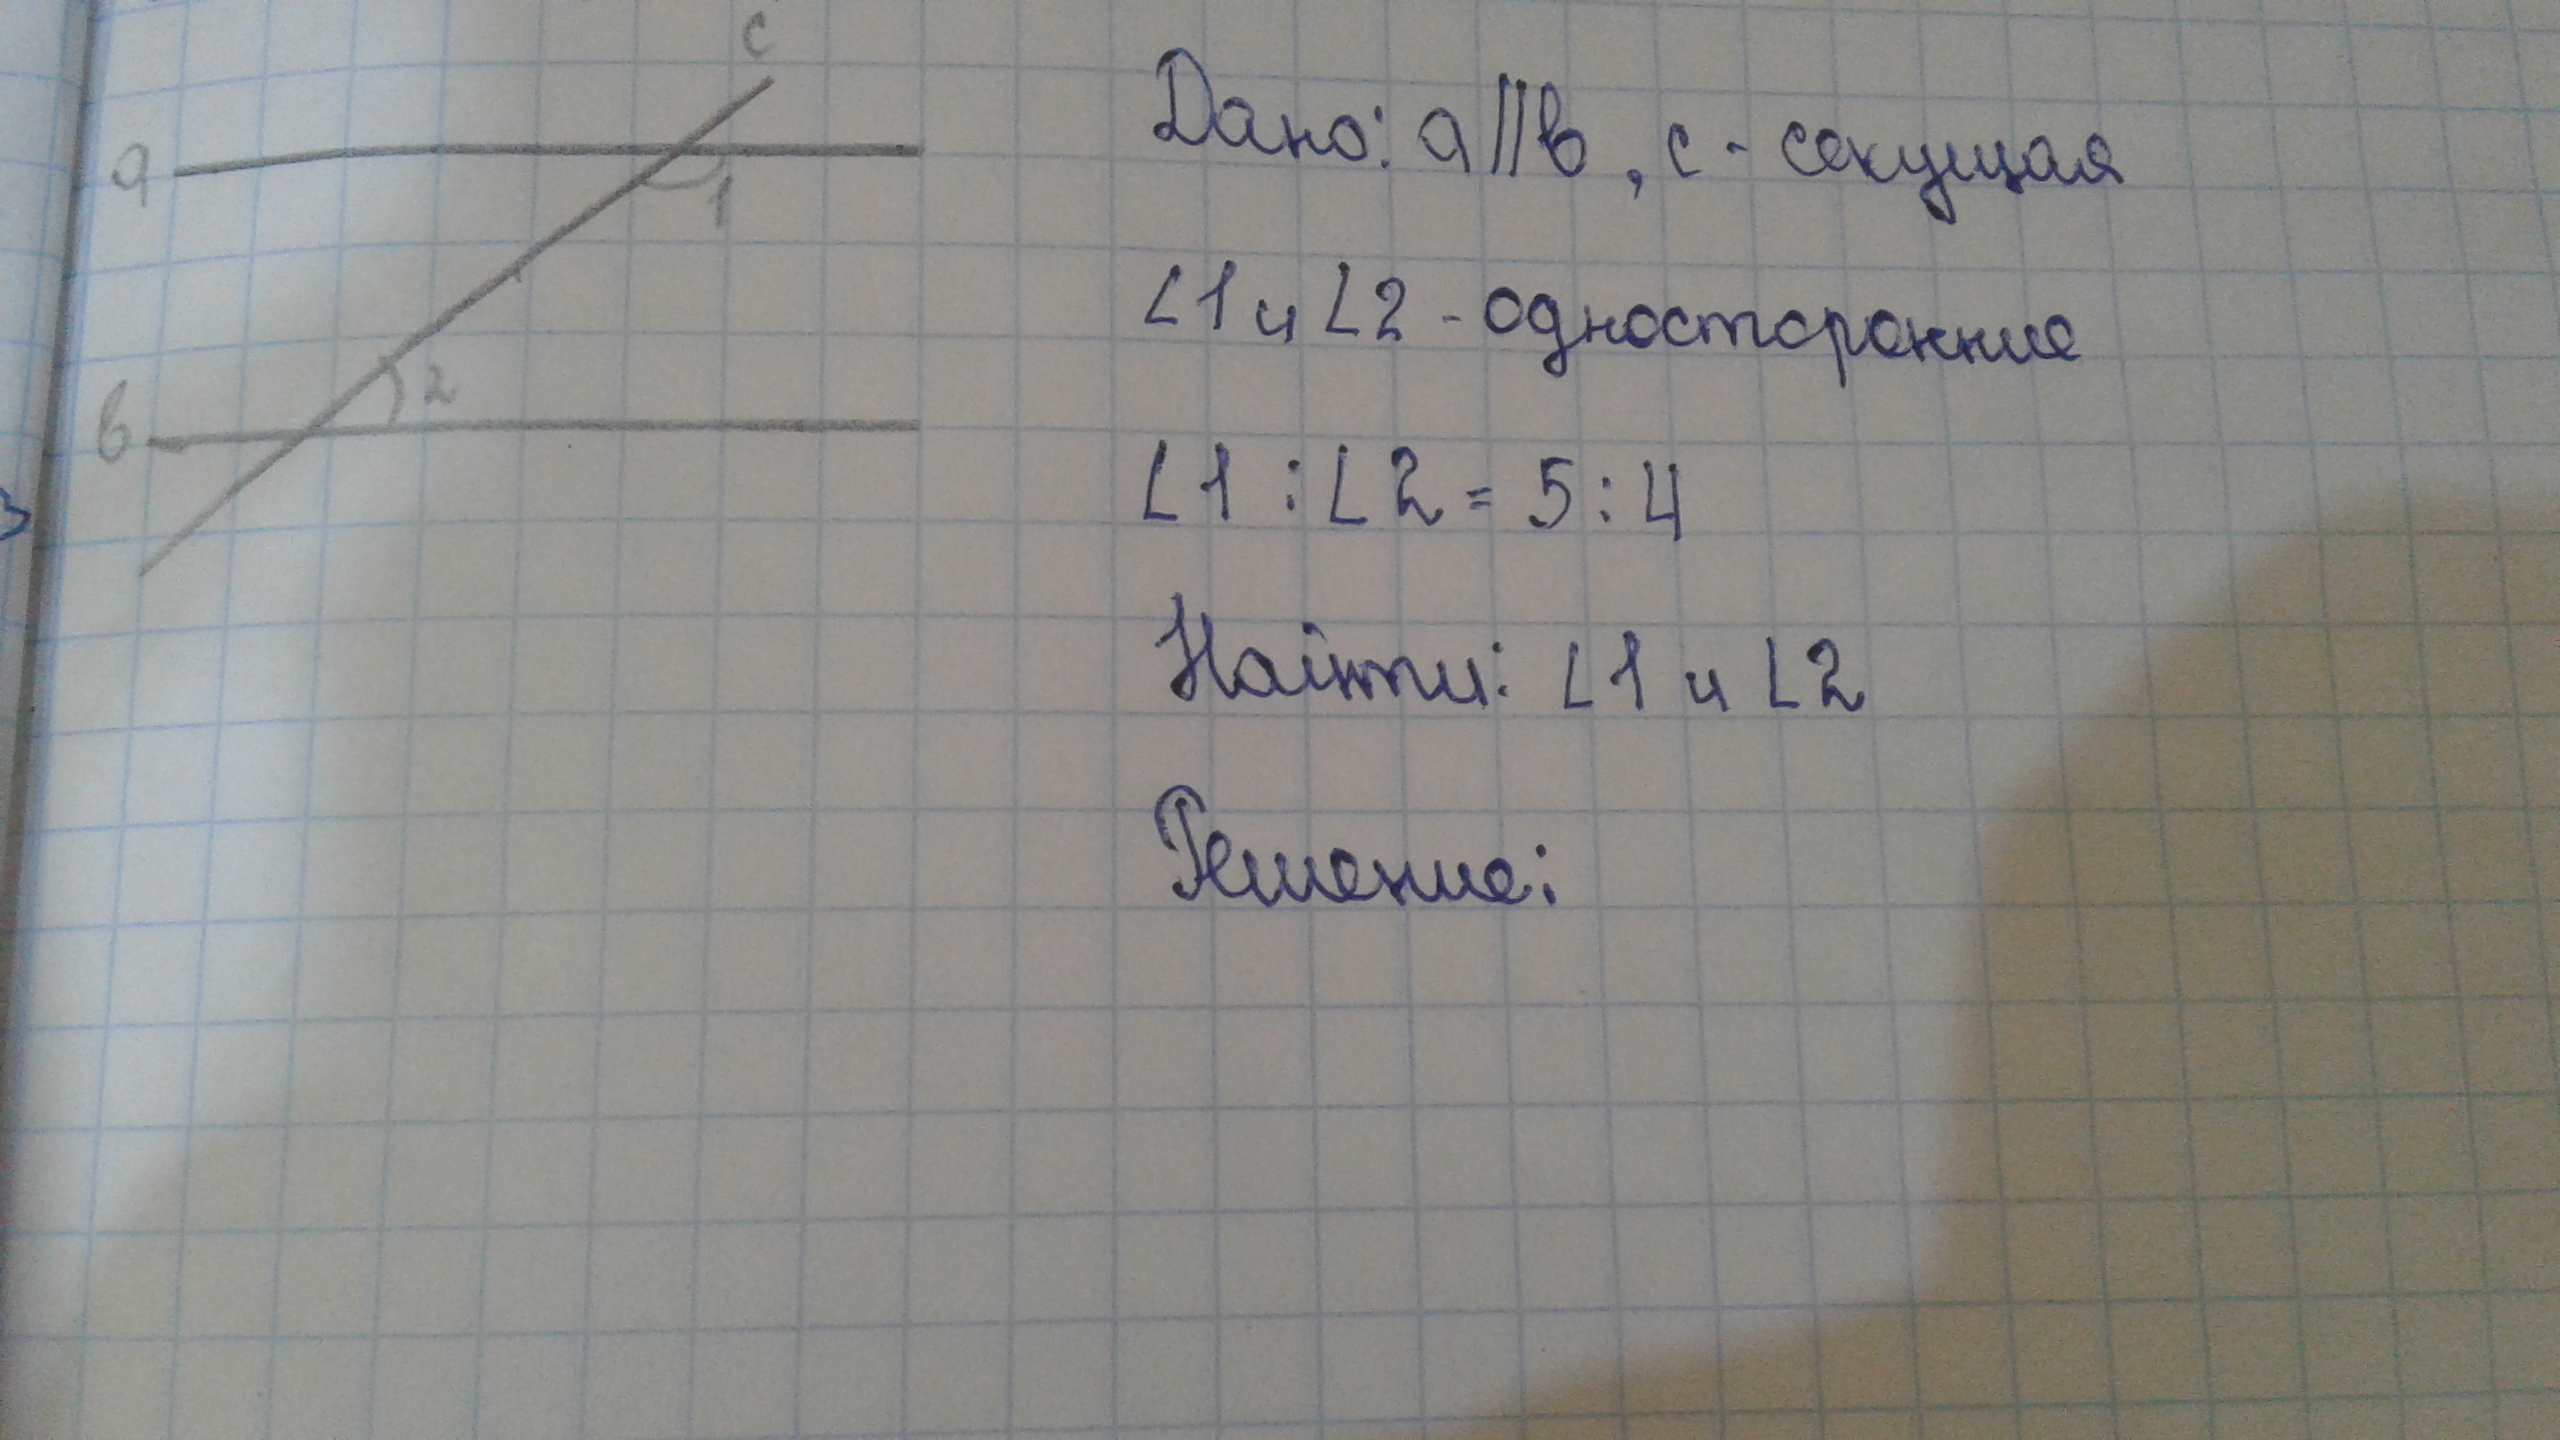 a
в
c
1
2
Дано: a || b, c - секущая
∠1 и ∠2 - односторонние
∠1 : ∠2 = 5 : 4
Найти: ∠1 и ∠2
Решение: